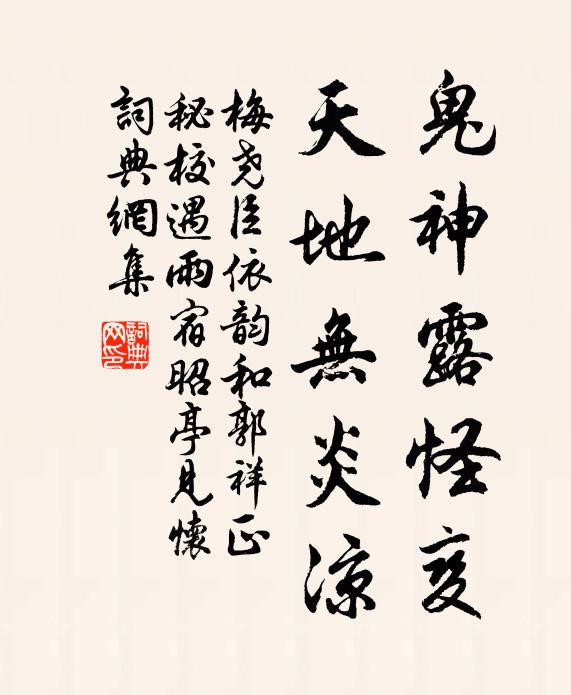 鬼神露怪变
天地無炎凉
梅尧臣依韵和郭祥正
秘校遇雨宿昭亭見懷
詞典網集
詞典网印